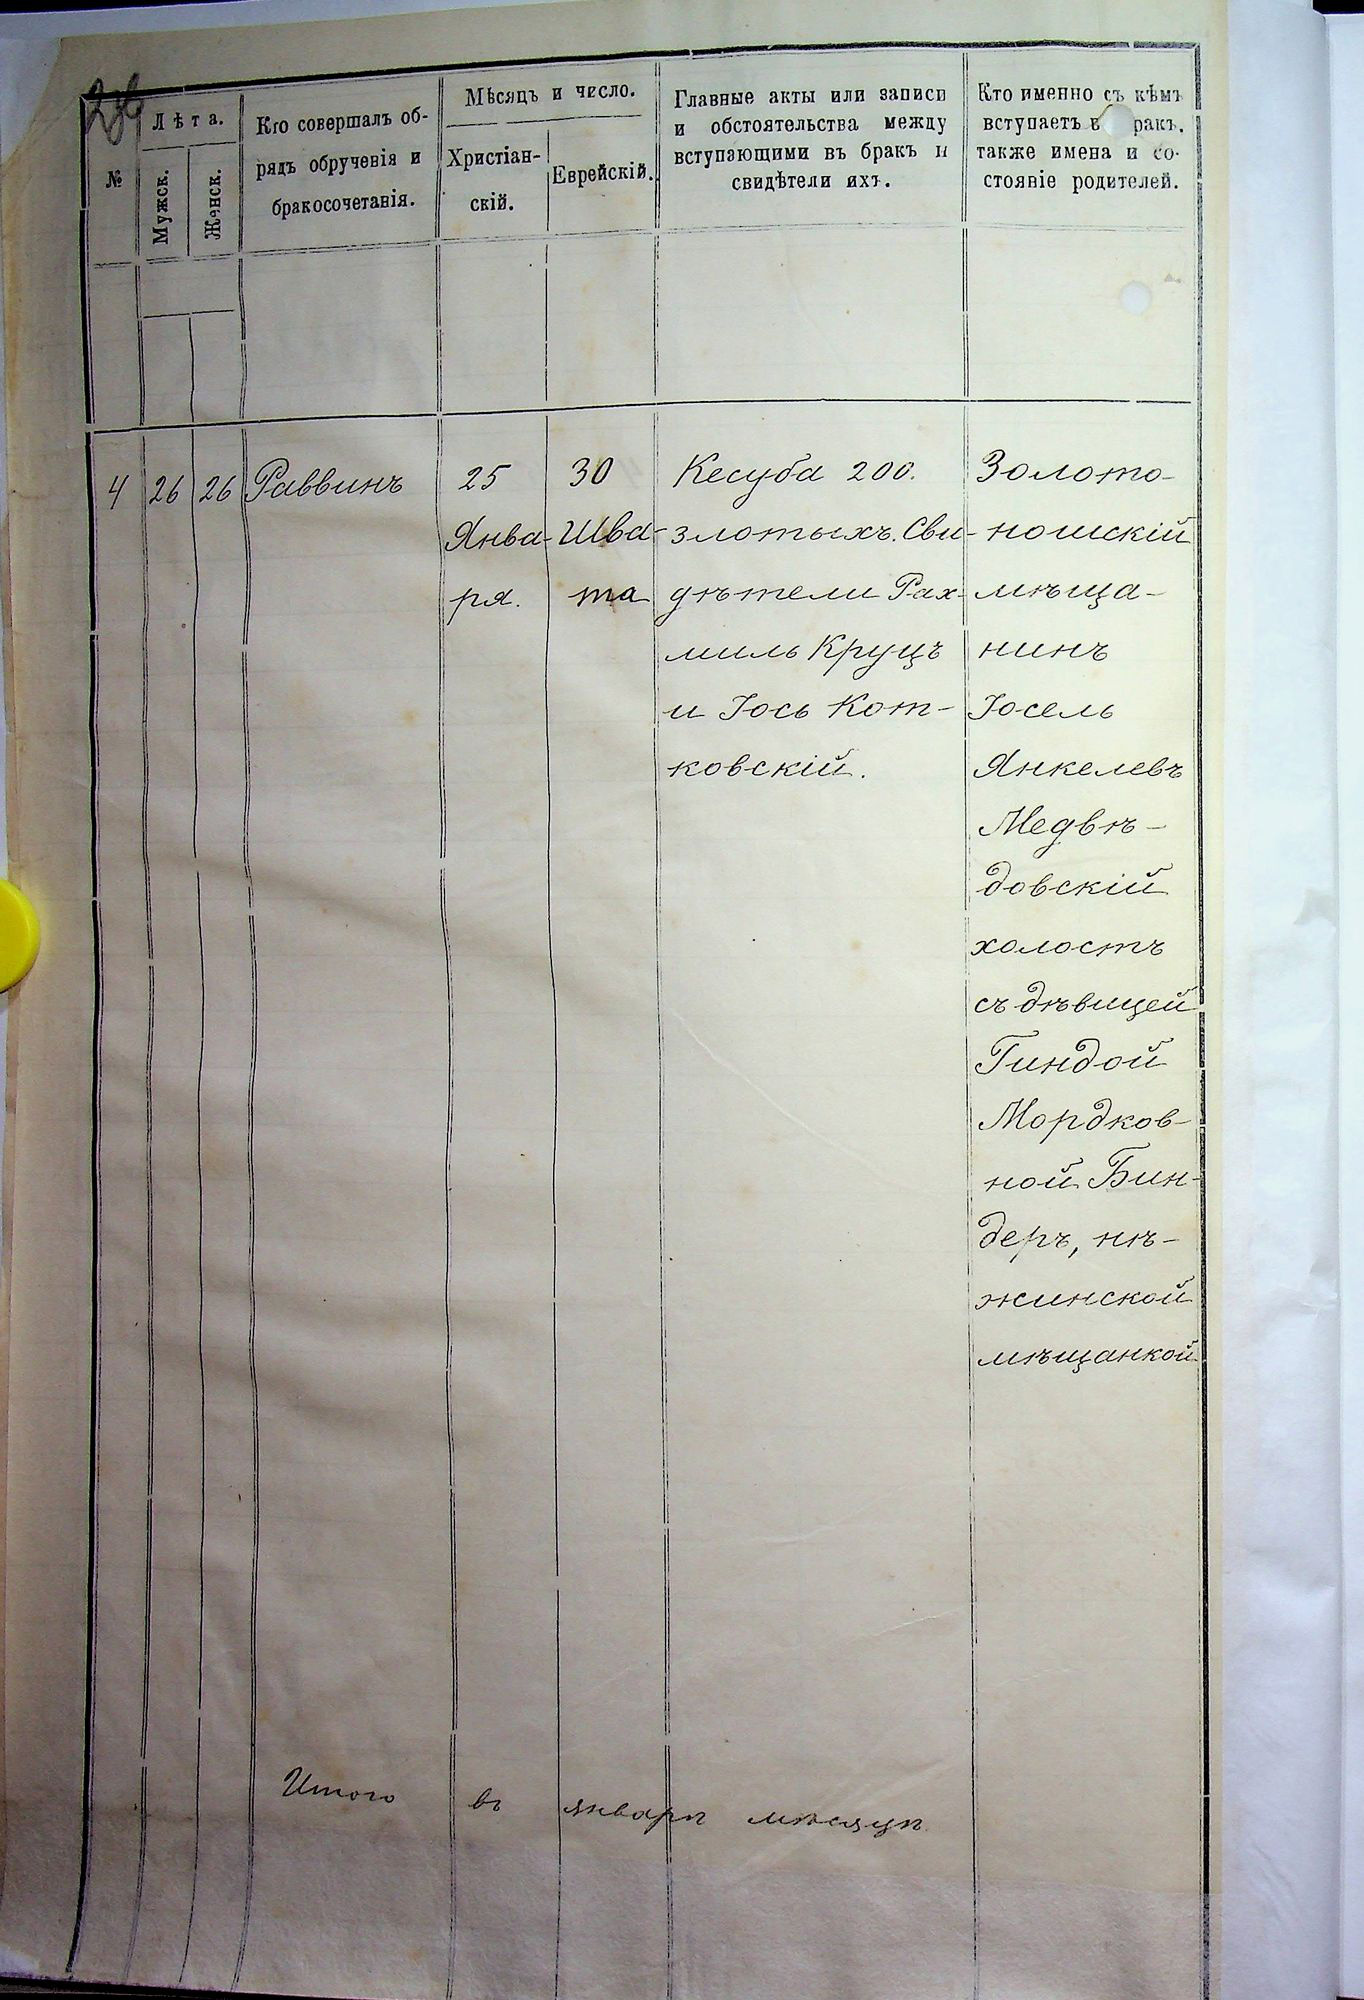 №
Лѣта.
Мужск.
Женск.
Кто совершалъ об-
рядъ обрученія и
бракосочетанія.
Мѣсяцъ и число.
Христіан-
скій.
Еврейскій.
Главные акты или записи
и обстоятельства между
вступающими въ бракъ и
свидѣтели ихъ.
Кто именно съ кѣмъ
вступаетъ в ракъ,
также имена и со-
стояніе родителей.
4
26
26
Раввинъ
25
Янва-
ря.
30
Шва-
та
Кесуба 200.
злотыхъ. Сви-
дѣтели Рах-
миль Круцъ
и Іось Кот-
ковскій.
Золото-
ношскій
мѣща-
нинъ
Іосель
Янкелевъ
Медвѣ-
довскій
холостъ
съ дѣвицей
Гиндой
Мордков-
ной Бин-
деръ, нѣ-
жинской
мѣщанкой
Итого въ январѣ мѣсяцѣ